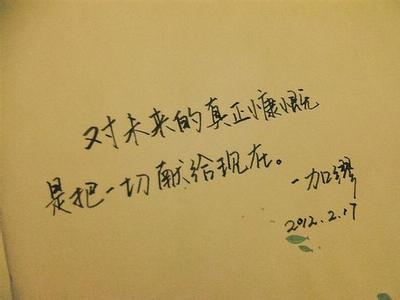 对未来的真正慷慨
是把一切献给现在。
-加缪
2012.2.17